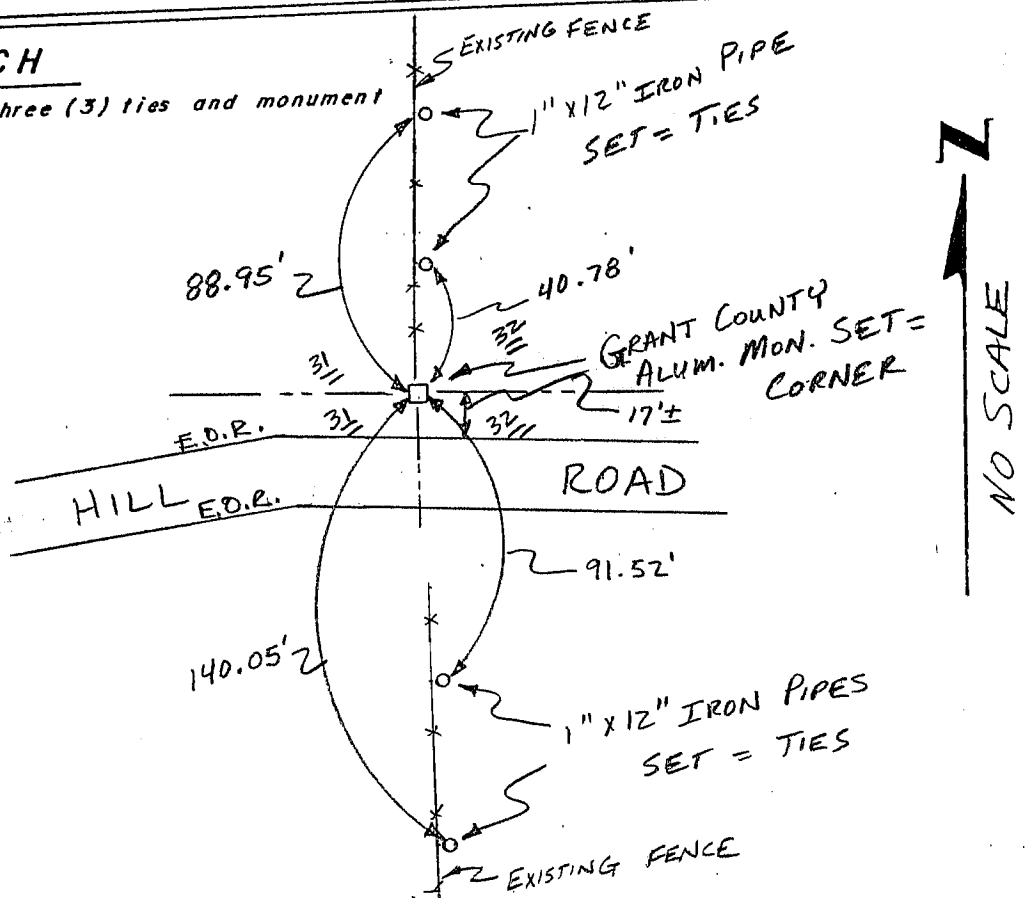 CH
hree (3) ties and monument
EXISTING FENCE
1" X 12" IRON PIPE
SET = TIES
N
88.95'
40.78'
GRANT COUNTY
ALUM. MON. SET =
CORNER
31 32
31 32
17'±
NO SCALE
E.O.R.
HILL ROAD
E.O.R.
91.52'
140.05'
1" X 12" IRON PIPES
SET = TIES
EXISTING FENCE